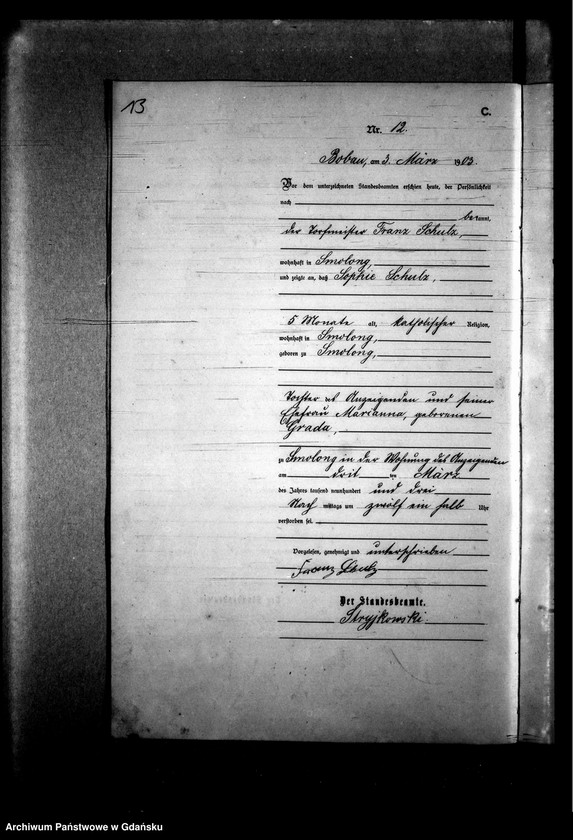 13
C.
Nr. 12.
Bobau, am 3. März 1903.
Vor dem unterzeichneten Standesbeamten erschien heute, der Persönlichkeit
nach
bekannt,
der Torfmeister Franz Schulz,
wohnhaft in Smolong,
und zeigte an, daß Sophie Schulz,
5 Monate alt, katholischer Religion,
wohnhaft in Smolong,
geboren zu Smolong,
Tochter des Anzeigenden und seiner
Ehefrau Marianna, geborenen
Grada,
zu Smolong in der Wohnung des Anzeigenden
am drit ten März
des Jahres tausend neunhundert und drei
Nach mittags um zwölf ein halb Uhr
verstorben sei.
Vorgelesen, genehmigt und unterschrieben
Franz Schulz
Der Standesbeamte.
Stryjkowski.
Archiwum Państwowe w Gdańsku